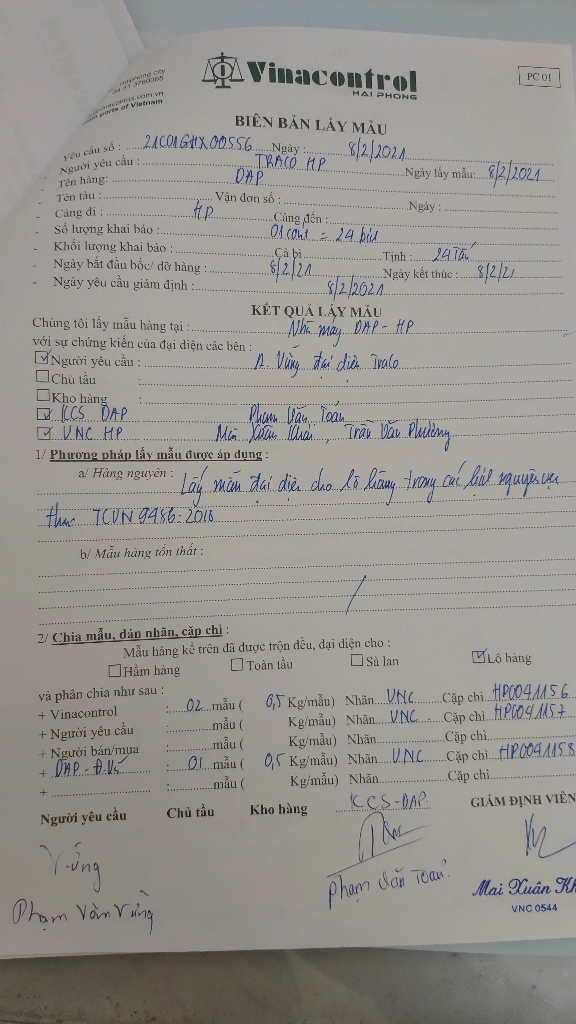 Haiphong city
Vinacontrol
HAI PHONG
PC 01
BIÊN BẢN LẤY MẪU
Yêu cầu số : 21C01GHX00556 Ngày : 8/2/2021
Người yêu cầu : TRACO HP Ngày lấy mẫu: 8/2/2021
- Tên hàng: DAP
- Tên tàu : Vận đơn số : Ngày :
- Cảng đi : HP Cảng đến :
- Số lượng khai báo : 01 cont = 24 bịch
- Khối lượng khai báo : Cả bì Tịnh : 24 Tấn
- Ngày bắt đầu bốc/ dỡ hàng : 8/2/21 Ngày kết thúc : 8/2/21
- Ngày yêu cầu giám định : 8/2/2021
KẾT QUẢ LẤY MẪU
Chúng tôi lấy mẫu hàng tại : Nhà máy DAP - HP
với sự chứng kiến của đại diện các bên :
Người yêu cầu : A Vững đại diện Traco
Chủ tầu :
Kho hàng :
KCS DAP Phạm Văn Toán
VNC HP Mai Xuân Khải , Trần Văn Phường
1/ Phương pháp lấy mẫu được áp dụng :
a/ Hàng nguyên : Lấy mẫu đại diện cho lô hàng trong các bịch nguyên vẹn
theo TCVN 9486:2018
b/ Mẫu hàng tổn thất :
2/ Chia mẫu, dán nhãn, cặp chì :
Mẫu hàng kể trên đã được trộn đều, đại diện cho :
Hầm hàng Toàn tầu Sà lan Lô hàng
và phân chia như sau :
+ Vinacontrol : 02 mẫu ( 0,5 Kg/mẫu) Nhãn VNC Cặp chì HP0041156
+ Người yêu cầu : mẫu ( Kg/mẫu) Nhãn VNC Cặp chì HP0041157
+ Người bán/mua : mẫu ( Kg/mẫu) Nhãn Cặp chì
+ DAP - Đ.Vũ : 01 mẫu ( 0,5 Kg/mẫu) Nhãn VNC Cặp chì HP0041158
+ : mẫu ( Kg/mẫu) Nhãn Cặp chì
Người yêu cầu Chủ tầu Kho hàng KCS-DAP GIÁM ĐỊNH VIÊN
Vững
Phạm Văn Vững
Phạm Văn Toán
Mai Xuân Kh
VNC 0544